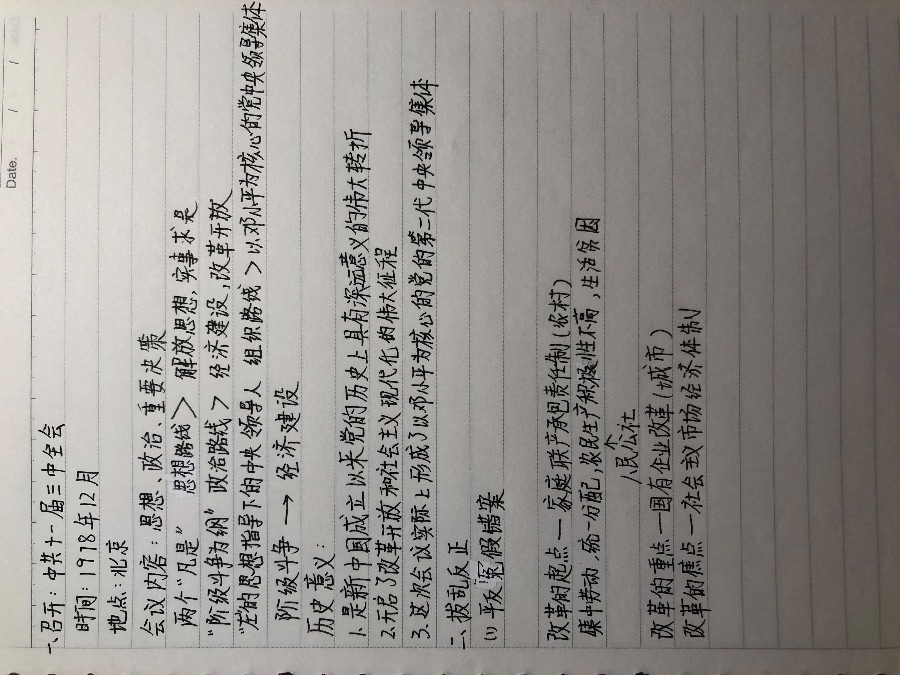 Date.     /     /
一、召开：中共十一届三中全会
时间：1978年12月
地点：北京
会议内容：思想、政治、重要决策
两个“凡是” 思想路线> 解放思想,实事求是
“阶级斗争为纲” 政治路线> 经济建设,改革开放
“左”的思想指导下的中央领导人 组织路线>以邓小平为核心的党中央领导集体
阶级斗争 → 经济建设
历史意义：
1. 是新中国成立以来党的历史上具有深远意义的伟大转折
2. 开启了改革开放和社会主义现代化的伟大征程
3. 这次会议实际上形成了以邓小平为核心的党的第二代中央领导集体
二、拨乱反正
(1) 平反冤假错案
改革的起点 — 家庭联产承包责任制(农村)
集中劳动,统一分配,农民生产积极性不高,生活贫困
人民公社
改革的重点 — 国有企业改革(城市)
改革的焦点 — 社会主义市场经济体制